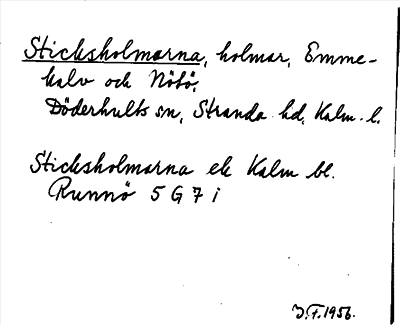 Sticksholmarna, holmar, Emme-
kalv och Nötö,
Döderhults sn, Stranda hd, Kalm. l.
Sticksholmarna ek Kalm bl.
Runnö 5 G 7 i
J.F. 1956.